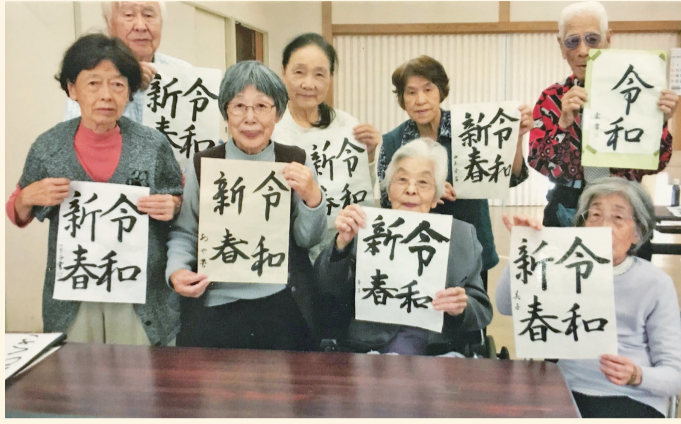 令和
新春
令和
新春
令和
新春
令和
令和
新春
令和
新春
令和
新春
令和
新春